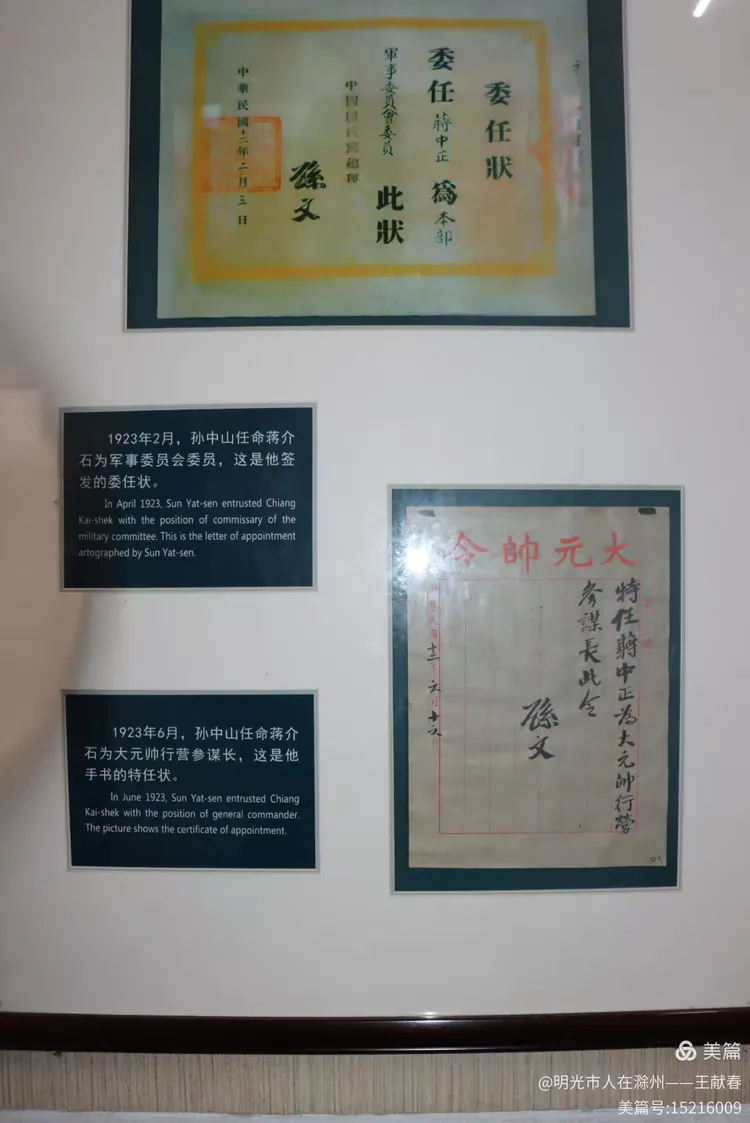 委任狀
委任蔣中正為本部
軍事委員會委員
此狀
中國國民黨總理
孫文
中華民國十二年二月三日
1923年2月，孙中山任命蒋介
石为军事委员会委员，这是他签
发的委任状。
In April 1923, Sun Yat-sen entrusted Chiang
Kai-shek with the position of commissary of the
military committee. This is the letter of appointment
artographed by Sun Yat-sen.
大元帥令
特任蔣中正為大元帥行營
參謀長此令
孫文
十二 六 十六
1923年6月，孙中山任命蒋介
石为大元帅行营参谋长，这是他
手书的特任状。
In June 1923, Sun Yat-sen entrusted Chiang
Kai-shek with the position of general commander.
The picture shows the certificate of appointment.
美篇
@明光市人在滁州——王献春
美篇号:15216009